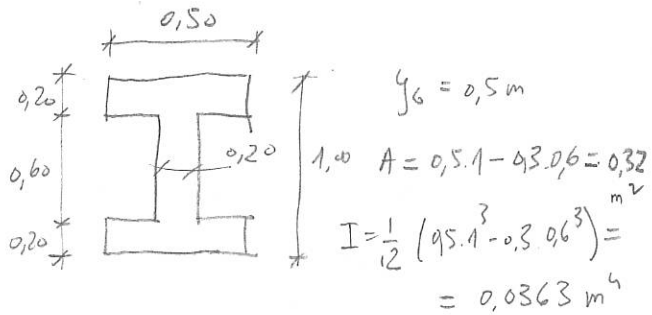 0,50
0,20
0,60
0,20
0,20
1,00
yG = 0,5 m
A = 0,5.1 - 0,3.0,6 = 0,32 m²
I = 1/12 (0,5.1³ - 0,3 0,6³) =
= 0,0363 m⁴